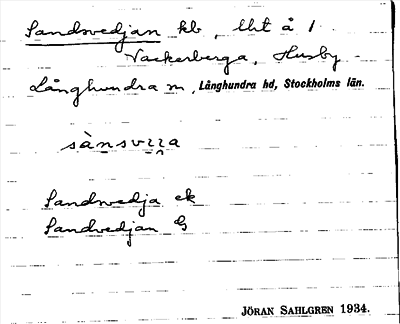 Sandsvedjan kb, lht å 1
Vackerberga, Husby-
Långhundra sn, Långhundra hd, Stockholms län.
Sandsvedja ek
Sandsvedjan G
JÖRAN SAHLGREN 1934.